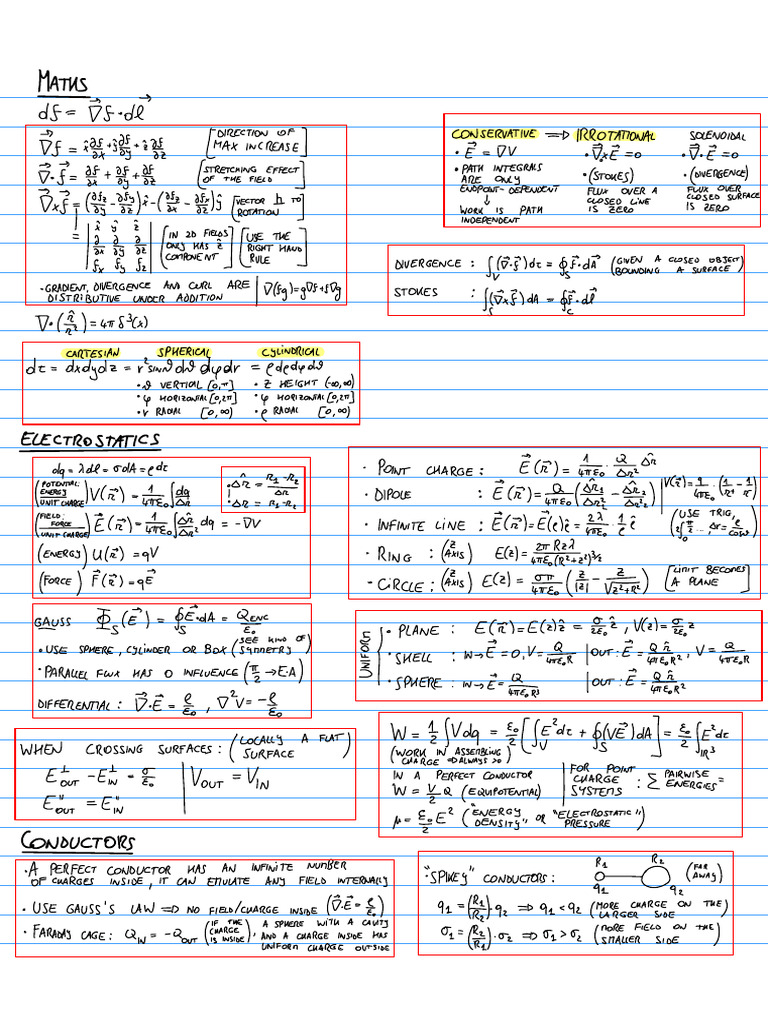 MATHS
df = ∇⃗f·dl⃗
∇⃗f = x̂ ∂f/∂x + ŷ ∂f/∂y + ẑ ∂f/∂z [DIRECTION OF MAX INCREASE]
∇⃗·f⃗ = ∂f/∂x + ∂f/∂y + ∂f/∂z [STRETCHING EFFECT OF THE FIELD]
∇⃗×f⃗ = (∂fz/∂y − ∂fy/∂z)x̂ − (∂fz/∂x − ∂fx/∂z)ŷ [VECTOR ⊥ TO ROTATION]
= | x̂ ŷ ẑ |
| ∂/∂x ∂/∂y ∂/∂z |
| fx fy fz |
[IN 2D FIELDS ONLY HAS ẑ COMPONENT] [USE THE RIGHT HAND RULE]
· GRADIENT, DIVERGENCE AND CURL ARE DISTRIBUTIVE UNDER ADDITION | ∇(fg) = g∇f + f∇g
∇·(r̂/r²) = 4πδ³(r)
CARTESIAN SPHERICAL CYLINDRICAL
dτ = dxdydz = r² sinϑ dϑ dφ dr = ρdρdφdz
· ϑ VERTICAL [0,π] · z HEIGHT (-∞,∞)
· φ HORIZONTAL [0,2π] · φ HORIZONTAL [0,2π]
· r RADIAL [0,∞) · ρ RADIAL [0,∞)
CONSERVATIVE ⟹ IRROTATIONAL SOLENOIDAL
· E⃗ = ∇V · ∇⃗×E⃗ = 0 · ∇⃗·E⃗ = 0
· PATH INTEGRALS ARE ONLY ENDPOINT-DEPENDENT
↓
WORK IS PATH INDEPENDENT
· (STOKES)
FLUX OVER A CLOSED LINE IS ZERO
· (DIVERGENCE)
FLUX OVER CLOSED SURFACE IS ZERO
DIVERGENCE : ∫V (∇⃗·f⃗)dτ = ∮S f⃗·dA⃗ (GIVEN A CLOSED OBJECT BOUNDING A SURFACE)
STOKES : ∫S (∇⃗×f⃗)dA = ∮C f⃗·dl⃗
ELECTROSTATICS
dq = λdl = σdA = ρdτ
(POTENTIAL: ENERGY/UNIT CHARGE) V(r⃗) = 1/4πε₀ ∫ dq/Δr
· Δr̂ = (r₁ − r₂)/Δr
· Δr = r₁ − r₂
(FIELD: FORCE/UNIT CHARGE) E⃗(r⃗) = 1/4πε₀ ∫ Δr̂/Δr² dq = −∇V
(ENERGY) U(r⃗) = qV
(FORCE) F⃗(r⃗) = qE⃗
· POINT CHARGE : E⃗(r⃗) = 1/4πε₀ · Q/Δr² Δr̂
· DIPOLE : E⃗(r⃗) = Q/4πε₀ (Δr̂₁/Δr₁² − Δr̂₂/Δr₂²) | V(r⃗) = 1/4πε₀ (1/r⁺ − 1/r⁻)
· INFINITE LINE : E⃗(r⃗) = E⃗(ρ)ρ̂ = 2λ/4πε₀ · 1/ρ ρ̂ (USE TRIG, 2∫₀^π/2 ..., Δr = ρ/cosϑ)
· RING : (z AXIS) E(z) = 2πRzλ/4πε₀(R²+z²)^3/2
· CIRCLE : (z AXIS) E(z) = σπ/4πε₀ (z/|z| − z/√(z²+R²)) [LIMIT BECOMES A PLANE]
GAUSS Φ⃗S(E⃗) = ∮S E⃗·dA = QENC/ε₀
· USE SPHERE, CYLINDER OR BOX (SEE KIND OF SYMMETRY)
· PARALLEL FLUX HAS 0 INFLUENCE (π/2 → E·A)
DIFFERENTIAL : ∇⃗·E⃗ = ρ/ε₀ , ∇²V = −ρ/ε₀
UNIFORM
· PLANE : E(r⃗) = E(z)ẑ = σ/2ε₀ ẑ , V(z) = σ/2ε₀ z
· SHELL : IN → E = 0, V = Q/4πε₀R | OUT : E⃗ = Q r̂/4πε₀R² , V = Q/4πε₀R
· SPHERE : IN → E⃗ = Q/4πε₀R³ | OUT : E⃗ = Q r̂/4πε₀R²
WHEN CROSSING SURFACES : (LOCALLY A FLAT SURFACE)
E⊥OUT − E⊥IN = σ/ε₀ | VOUT = VIN
E∥OUT = E∥IN
W = 1/2 ∫ V dq = ε₀/2 [∫V E² dτ + ∮S (VE⃗)dA] = ε₀/2 ∫ℝ³ E² dτ
(WORK IN ASSEMBLING CHARGE ⇒ ALWAYS >0)
IN A PERFECT CONDUCTOR
W = V/2 Q (EQUIPOTENTIAL)
FOR POINT CHARGE SYSTEMS : Σ PAIRWISE ENERGIES =
μ = ε₀/2 E² ("ENERGY DENSITY" OR "ELECTROSTATIC" PRESSURE)
CONDUCTORS
· A PERFECT CONDUCTOR HAS AN INFINITE NUMBER OF CHARGES INSIDE, IT CAN EMULATE ANY FIELD INTERNALLY
· USE GAUSS'S LAW ⇒ NO FIELD/CHARGE INSIDE (∇⃗·E⃗ = ρ/ε₀)
· FARADAY CAGE : QIN = −QOUT (IF THE CHARGE IS INSIDE), A SPHERE WITH A CAVITY AND A CHARGE INSIDE HAS UNIFORM CHARGE OUTSIDE
· "SPIKEY" CONDUCTORS : R₁ R₂ q₁ q₂ (FAR AWAY)
q₁ = (R₁/R₂)·q₂ ⇒ q₁ < q₂ (MORE CHARGE ON THE LARGER SIDE)
σ₁ = (R₂/R₁)·σ₂ ⇒ σ₁ > σ₂ (MORE FIELD ON THE SMALLER SIDE)